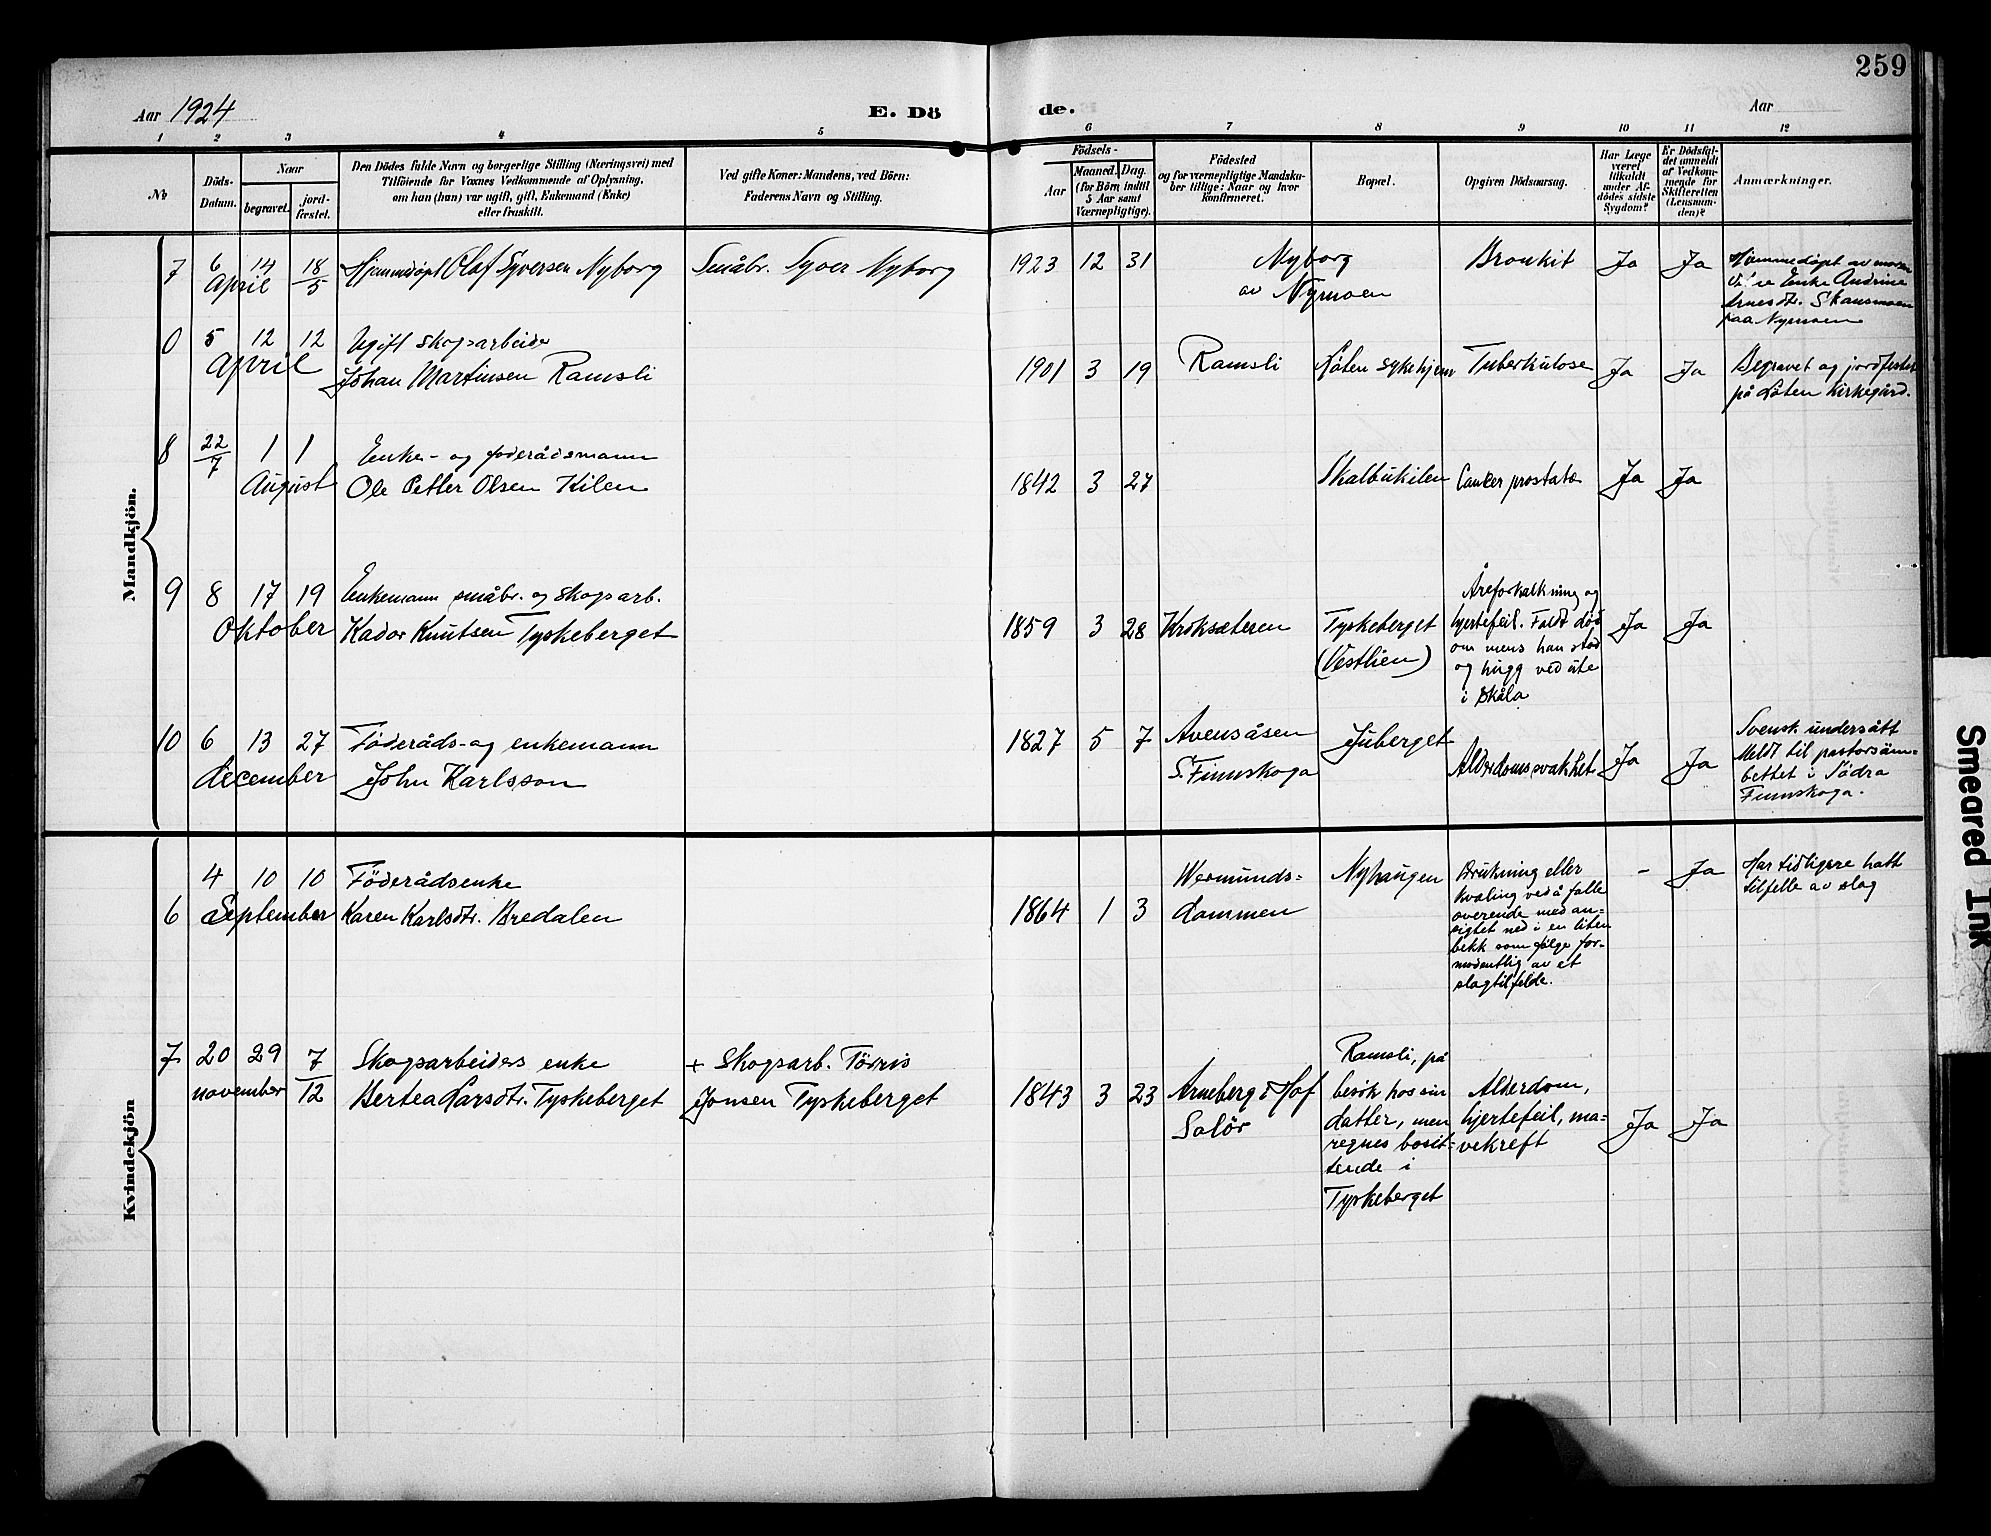 259
Aar 1924
E. Dö
de.
Aar
1 2 3 4 5 6 7 8 9 10 11 12
No
Döds-
Datum.
Naar
begravet.
jord-
fæstet.
Den Dödes fulde Navn og borgerlige Stilling (Næringsvei) med
Tilföiende for Voxnes Vedkommende af Oplysning,
om han (hun) var ugift, gift, Enkemand (Enke)
eller fraskilt.
Ved gifte Koner: Mandens, ved Börn:
Faderens Navn og Stilling.
Födsels-
Aar
Maaned. Dag.
(for Börn indtil
5 Aar samt
Værnepligtige).
Födested
og for værnepligtige Mandska-
ber tillige: Naar og hvor
konfirmeret.
Bopæl.
Opgiven Dödsaarsag.
Har Læge
været
tilkaldt
under Af-
dödes sidste
Sygdom?
Er Dödsfal-
det anmeldt
af Vedkom-
mende for
Skifteretten
(Lensman-
den)?
Anmærkninger.
Mandkjön.
7 6 14 18/5
April
Hjemmedöpt Olaf Syversen Nyborg
Småbr. Syver Nyborg
1923 12 31
Nyborg
av Nymoen
Bronkit
Ja
Ja
Hjemmedöpt av
Enke Andrine
Arnesdtr. Skansmoen
paa Nymoen
0 5 12 12
April
Ugift skogsarbeider
Johan Martinsen Ramsli
1901 3 19
Ramsli
Löten sykehjem
Tuberkulose
Ja
Ja
Begravet og jordfestet
på Löten Kirkegård.
8 22/7 1 1
August
Enke- og foderådsmann
Ole Petter Olsen Kilen
1842 3 27
Skalbukilen
Cancer prostatæ
Ja
Ja
9 8 17 19
Oktober
Enkemann småbr. og skogsarb.
Kador Knutsen Tyskeberget
1859 3 28
Kroksæteren
Tyskeberget
(Vestlien)
Åreforkalkning og
hjertefeil. Faldt död
om mens han stod
og hugg ved ute
i skåla
Ja
Ja
10 6 13 27
december
Föderåds- og enkemann
John Karlsson
1827 5 7
Avensåsen
S. Finnskoga
Juberget
Alderdomssvakhet
Ja
Ja
Svensk undersått
Meldt til pastorsäm-
bettet i Södra
Finnskoga.
Kvindekjön
6 4 10 10
September
Föderådsenke
Karen Karlsdtr. Bredalen
1864 1 3
Wermunds-
dammen
Nyhaugen
Drukning eller
kvæling ved å falle
overende med an-
sigtet ned i en liten
bekk som fölge for-
modentlig av et
slagtilfelde.
-
Ja
Har tidligere hatt
tilfelle av slag
7 20 29 7/12
november
Skogsarbeiders enke
Bertea Larsdtr. Tyskeberget
+ Skogsarb. Törris
Jonsen Tyskeberget
1843 3 23
Arneberg i Hof
Solör
Ramsli, på
besök hos sin
datter, men
regnes bosit-
tende i
Tyskeberget
Alderdom,
hjertefeil, ma-
vekreft
Ja
Ja
Smeared Ink